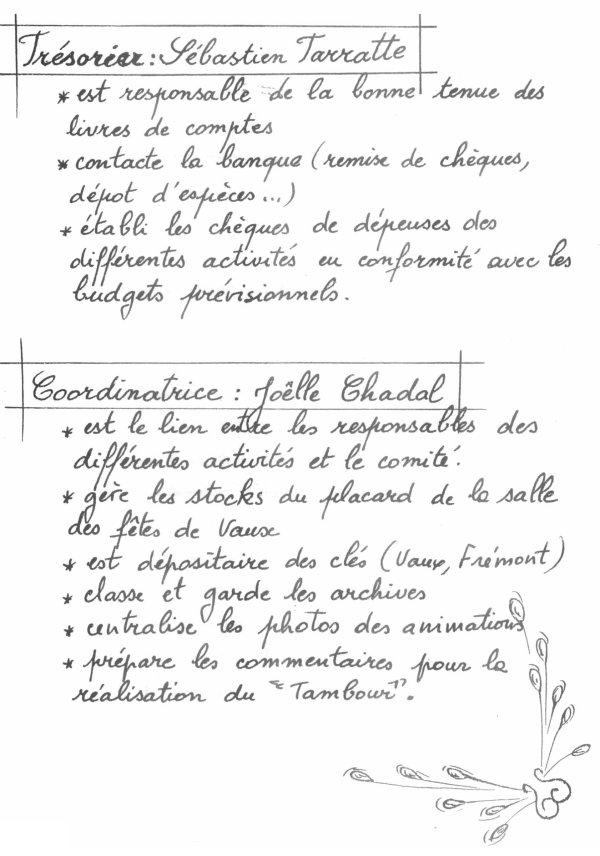 Trésorier : Sébastien Tarratte
* est responsable de la bonne tenue des
livres de comptes
* contacte la banque (remise de chèques,
dépot d'espèces...)
* établi les chèques de dépenses des
différentes activités en conformité avec les
budgets prévisionnels.
Coordinatrice : Joêlle Chadal
* est le lien entre les responsables des
différentes activités et le comité.
* gère les stocks du placard de la salle
des fêtes de Vaux
* est dépositaire des clés (Vaux, Frémont)
* classe et garde les archives
* centralise les photos des animations
* prépare les commentaires pour la
réalisation du "Tambour".